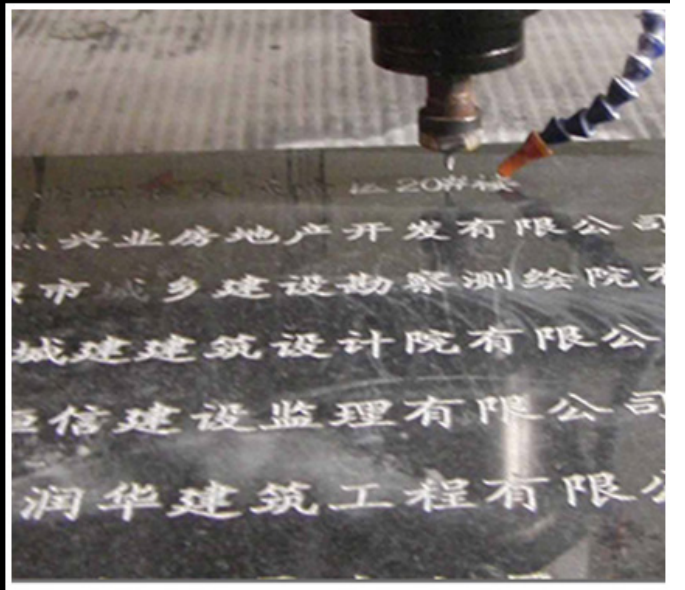 20#楼
兴业房地产开发有限公司
市城乡建设勘察测绘院有
城建建筑设计院有限公
恒信建设监理有限公司
润华建筑工程有限公